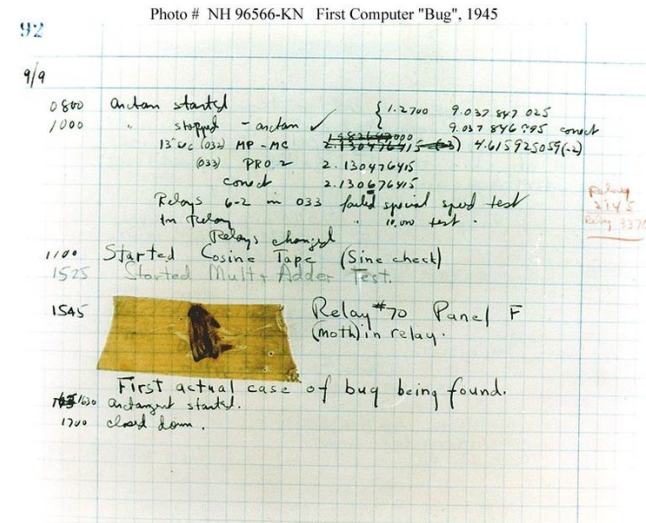 Photo # NH 96566-KN First Computer "Bug", 1945
92
9/9
0800 Antan started
1000 " stopped - antan ✓ { 1.2700 9.037 847 025
9.037 846 995 conect
13"uc (032) MP-MC 2.130476415 (-3) 4.615925059(-2)
(033) PRO 2 2.130476415
conect 2.130676415
Relays 6-2 in 033 failed special speed test
in Relay " 10,000 test .
Relay
2145
Relay 3370
Relays changed
1100 Started Cosine Tape (Sine check)
1525 Started Mult + Adder Test.
1545 Relay #70 Panel F
(moth) in relay.
First actual case of bug being found.
1630 antangent started.
1700 closed down.